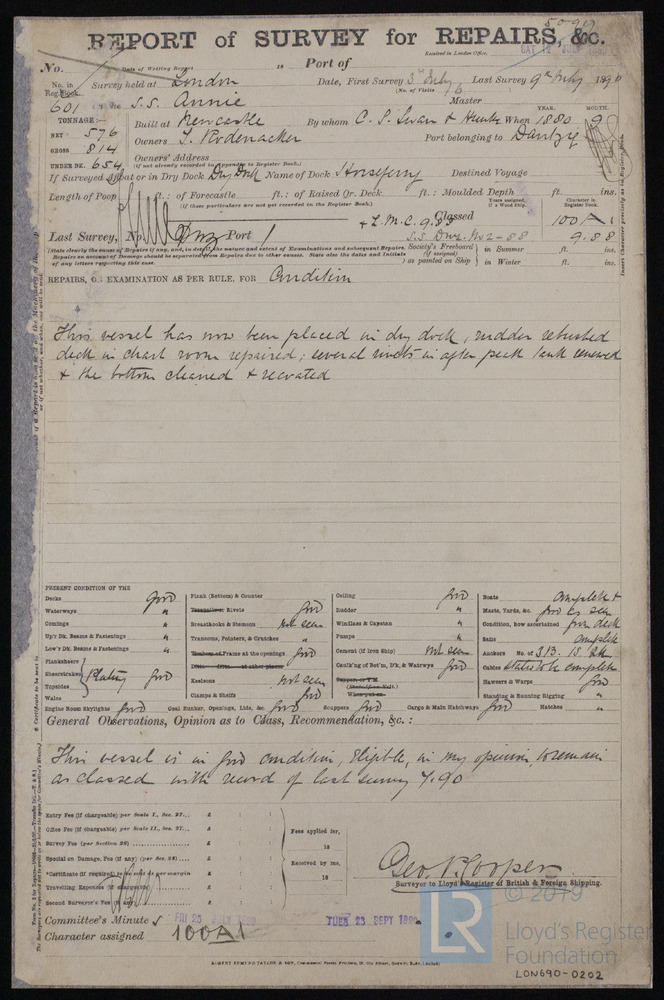 50919
REPORT of SURVEY for REPAIRS, &c.
Received in London Office,
No. Date of Writing Report 18 Port of
No. in Reg. Book. Survey held at London Date, First Survey 3rd July Last Survey 9th July 1890
(No. of Visits
601 on the S.S. Annie Master
TONNAGE:— YEAR. MONTH.
NET 576 Built at Newcastle By whom C. S. Swan & Hunter When 1880 9
GROSS 814 Owners T. Rodenacker Port belonging to Dantzig
UNDER DK. 654 Owners' Address
(if not already recorded in Appendix to Register Book.)
If Surveyed Afloat or in Dry Dock Dry Dock Name of Dock Horseferry Destined Voyage
Length of Poop ft.: of Forecastle ft.: of Raised Qr. Deck ft.: Moulded Depth ft. ins.
(If these particulars are not yet recorded in the Register Book.)
Years assigned, if a Wood Ship. Character in Register Book.
+L.M.C. 9.88 Classed 100 A 1
Last Survey, No. Port S.S. Dnz. No 2-88 9.88
(State clearly the cause of Repairs if any, and, in detail, the nature and extent of Examinations and subsequent Repairs.
Repairs on account of Damage should be separated from Repairs due to other causes. State also the dates and initials
of any letters respecting this case.
Society's Freeboard (if assigned) as painted on Ship in Summer ft. ins.
in Winter ft. ins.
REPAIRS, OR EXAMINATION AS PER RULE, FOR Condition
This vessel has now been placed in dry dock, rudder rebushed
deck in chart room repaired; several rivets in after peak tank renewed
& the bottom cleaned & recoated
PRESENT CONDITION OF THE
Decks good
Waterways "
Comings "
Up'r Dk. Beams & Fastenings "
Low'r Dk. Beams & Fastenings "
Planksheers
Sheerstrakes Plating good
Topsides
Wales
Engine Room Skylights good
Plank (Bottom) & Counter
Treenails or Rivets good
Breasthooks & Stemson not seen
Transoms, Pointers, & Crutches "
Timbers of Frame at the openings good
Ditto Ditto at other places
Keelsons not seen
Clamps & Shelfs good
Coal Bunker, Openings, Lids, &c. good
Ceiling good
Rudder "
Windlass & Capstan "
Pumps "
Cement (if Iron Ship) not seen
Caulk'ng of Bot'm, D'k, & Watrways good
Scuppers good Cargo & Main Hatchways good
Boats complete &
Masts, Yards, &c. good as seen
Condition, how ascertained from deck
Sails complete
Anchors No. of 3 B. 1 S. 2 K
Cables stated to be complete
Hawsers & Warps good
Standing & Running Rigging "
Hatches "
General Observations, Opinion as to Class, Recommendation, &c.:
This vessel is in good condition, Eligible, in my opinion, to remain
as classed with record of last survey 7.90
Entry Fee (if chargeable) per Scale I., Sec. 27... £ : :
Office Fee (if chargeable) per Scale II., Sec. 27... £ : :
Survey Fee (per Section 28) £ : :
Special on Damage, Fee (if any) (per Sec. 28) £ : :
*Certificate (if required) to be sent as per margin
Travelling Expenses (if chargeable) £ : :
Second Surveyor's Fee (if any) £ : :
Fees applied for,
18
Received by me,
18
Geo. P. Cooper
Surveyor to Lloyd's Register of British & Foreign Shipping.
Committee's Minute FRI 25 JULY 1890 TUES 23 SEPT 1890
Character assigned 100A1
© 2019
LR
Lloyd's Register
Foundation
LON690-0202